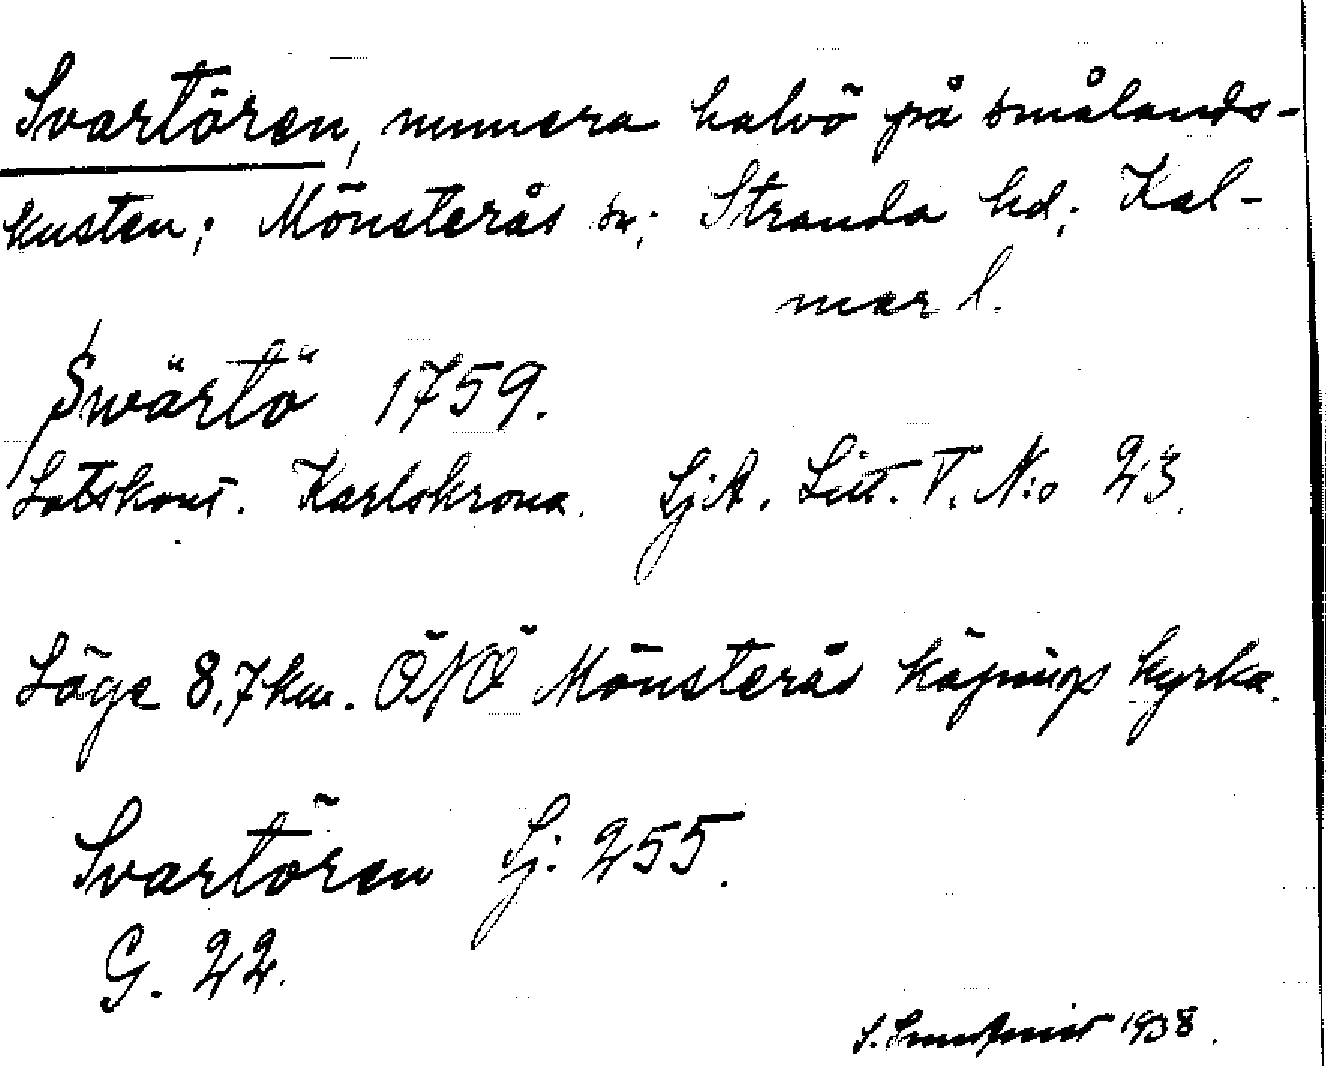 Svartören, numera halvö på smålands-
kusten; Mönsterås sn; Stranda hd; Kal-
mar l.
Swärtö 1759.
Lotskont. Karlskrona. Sj.A. Litt. T. N:o 23.
Läge 8,7 km. ÖNÖ Mönsterås köpings kyrka.
Svartören Sj. 255.
G. 22.
S. 1938.